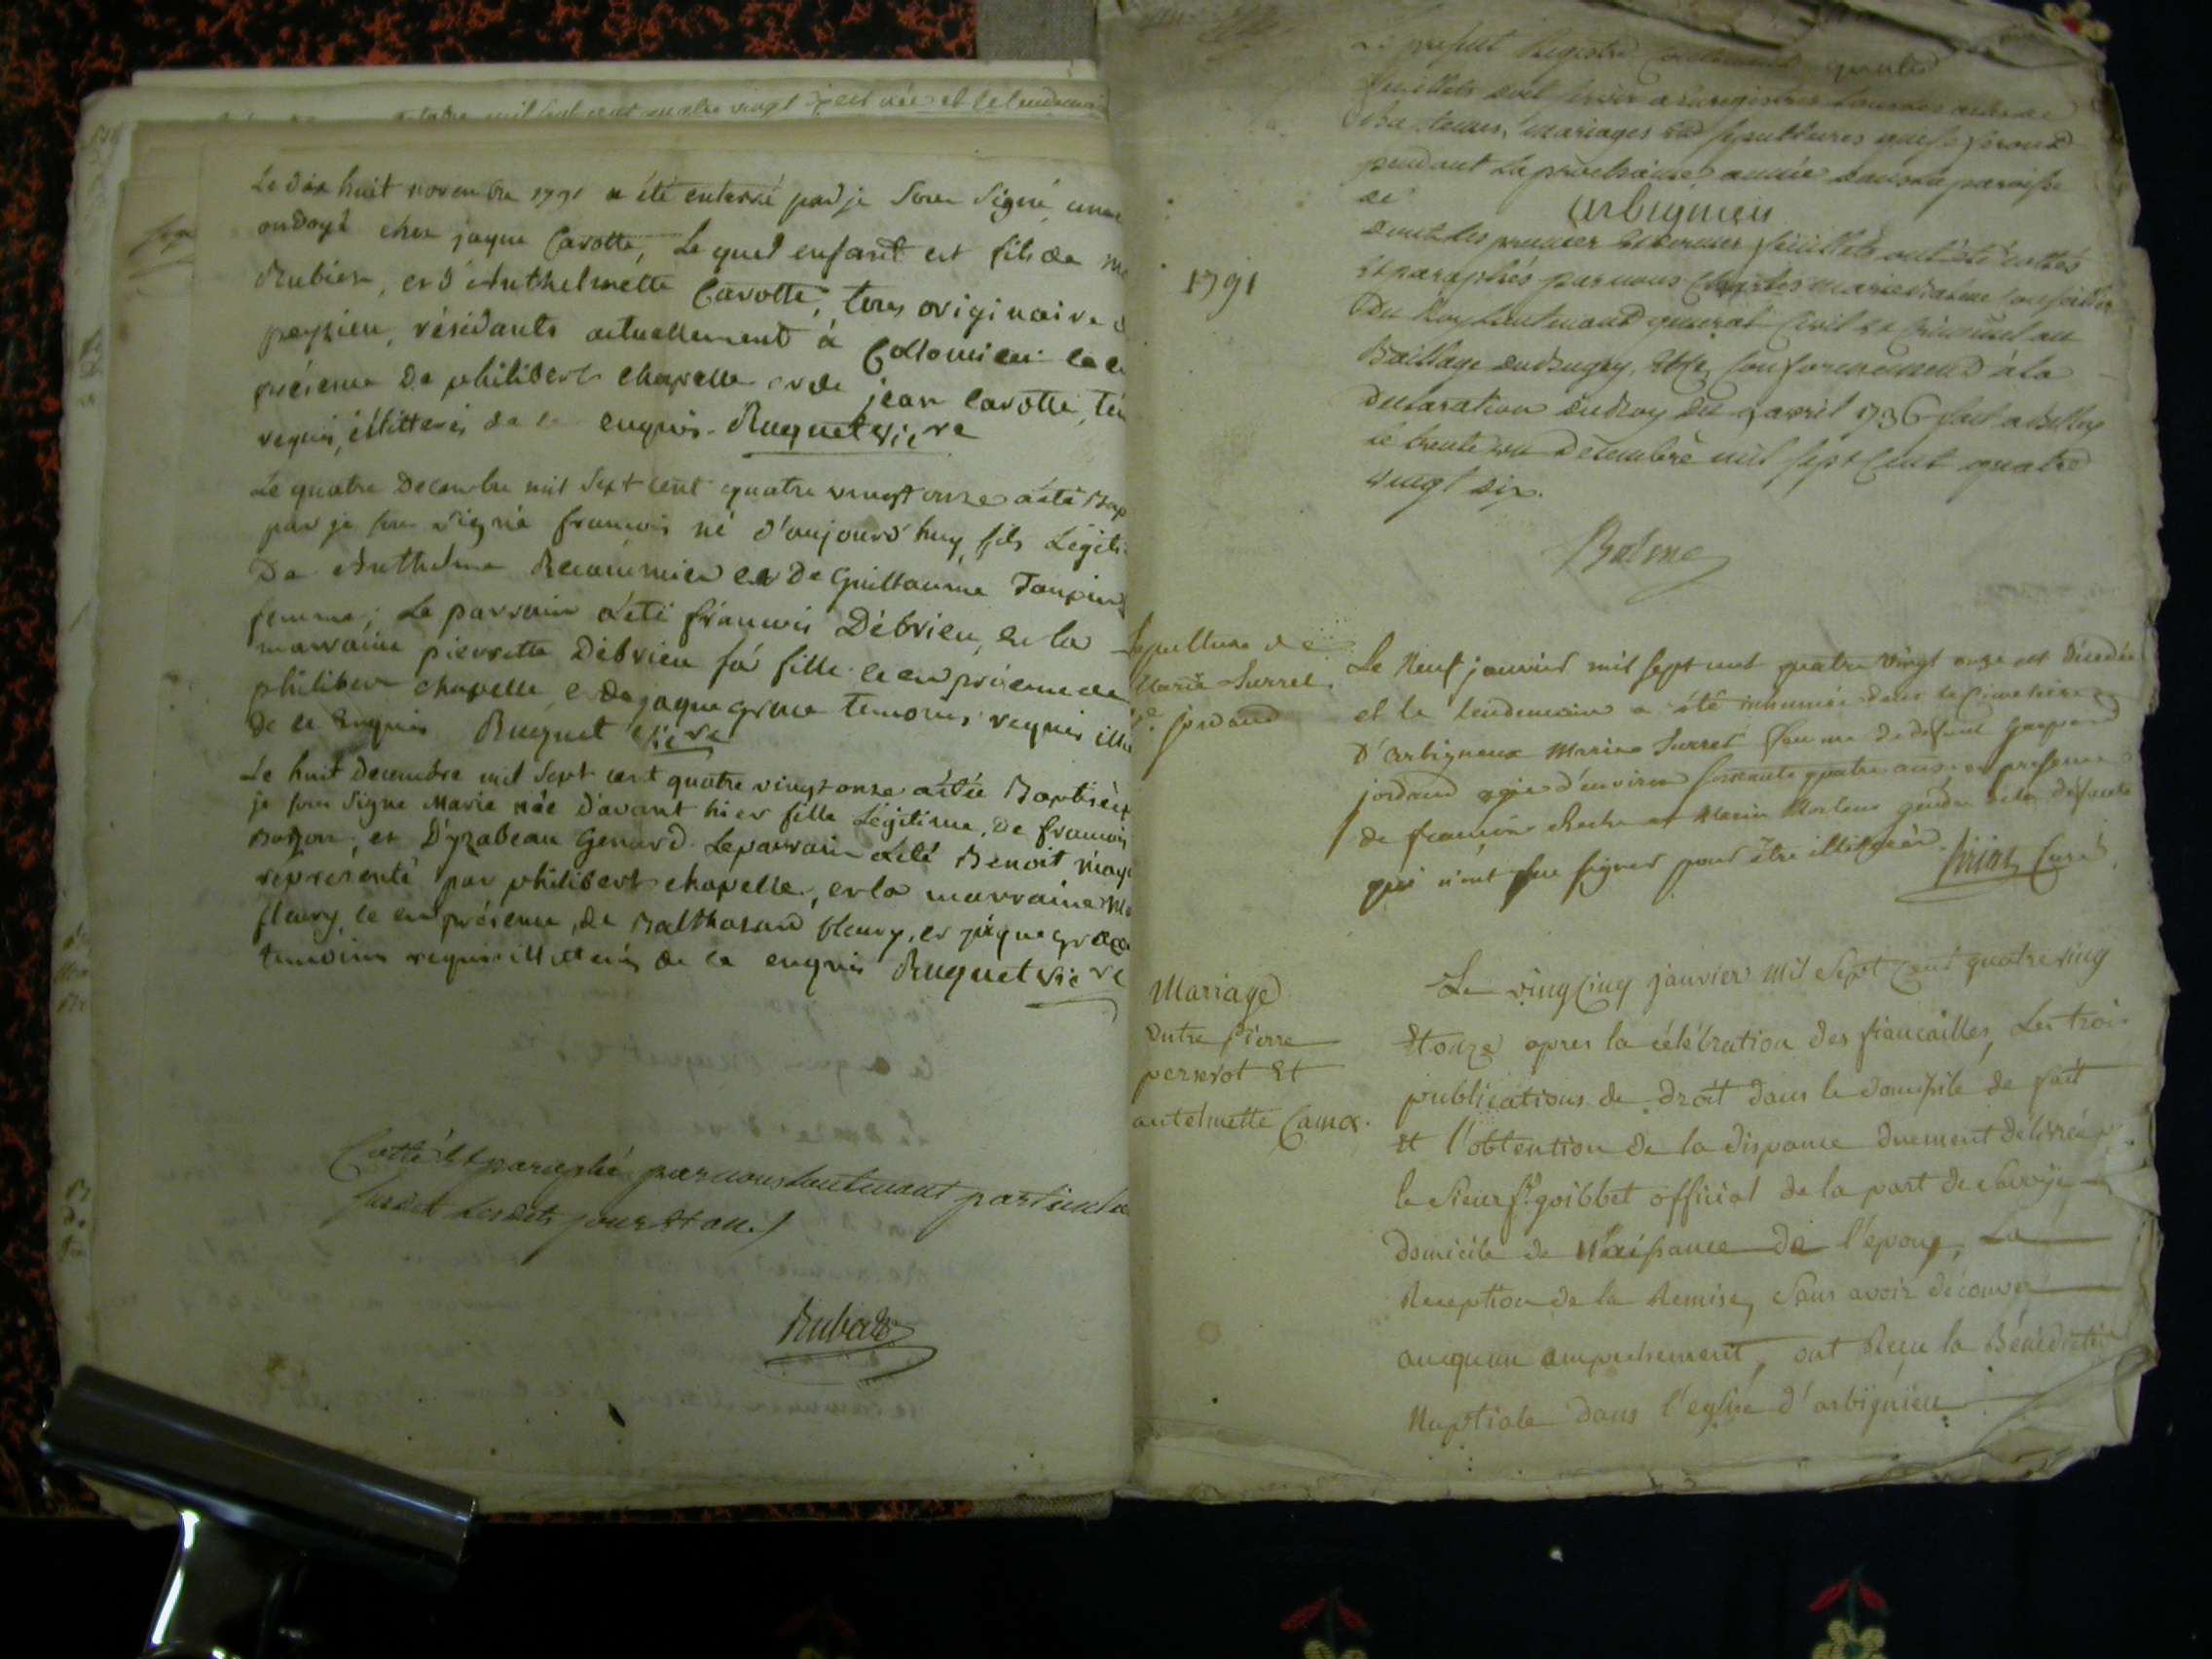 Le dix huit novembre 1791 a été enterré par je sous signé, un
ondoyé chez jaque Carotte, Le quel enfant est fils de
Rubier, et d'Anthelmette Carotte, tous originaire
peyzieu, résidants actuellement à Collomieu ce
présence de philibert chapelle et de jean Carotte
requis, illitterés de ce enquis. Ruquet vic re
Le quatre Decembre mil Sept cent quatre vingt onze a été Bap
par je sous signé francois né d'aujourd'huy, fils Légiti
De Anthelme Recammier et De Guillaume Taupin
femme; Le parrain a été francois Débrieu, et la
marraine pierrette Debrieu sa fille ce en présence de
philibert chapelle et De jaque grace temoins requis illi
de ce Enquis Ruquet vic re
Le huit decembre mil Sept cent quatre vingt onze a été Baptisée
je sous Signe Marie née d'avant hier fille Légitime, De francois
Bozon, et D'yzabeau Genard. Le parrain a été Benoit
representé par philibert chapelle, et la marraine
fleury, ce en présence, de Balthasard fleury, et jaque grace
temoins requis illitterés de ce enquis Ruquet vic re
Cotté Et paraphé par nous Lieutenant particulie
susdit Lesdits jour Et an
Rubat
Le present Registre contenant
feuillets doit servir a Enregistrer tous les actes de
Baptemes, mariages Et sepultures qui se feront
pendant La prochaine année dans La paroisse
de Arbignieu
1791
dont Les premier Et dernier feuillets ont été cottés
Et paraphés par nous Charles marie Balme Conseiller
Du Roy Lieutenant general Civil Et Criminel au
Bailliage du Bugey, conformement à la
Declaration du Roy du 9 avril 1736 fait a Belley
le trente un Decembre mil sept Cent quatre
vingt dix.
Balme
Sepulture de
Marie Surret
jordand
Le Neuf janvier mil sept cent quatre vingt onze est décedée
et le lendemain a été inhumée dans le cimetiere
d'arbignieux Marie Surret femme de defunt Gaspard
jordand agée d'environ soixante quatre ans, en presence
de francois Roche et Marin gendre de la defunte
qui n'ont sçu signer pour être illitterés. Curé
Mariage
Entre pierre
perserot Et
antelmette Camot.
Le vingcinq janvier mil Sept Cent quatre ving
Et onze apres la célébration des fiancailles, Les trois
publications de droit dans le domicile de fait
Et l'obtention de la dispance duement délivrée
le sieur goibbet official de la part de Savoye
domicile de Naissance de l'epoux, La
Reception de la Remise, Sans avoir découver
auqunn ampechement, ont Reçu la Bénédictio
Nuptiale dans l'eglise d'arbignieu